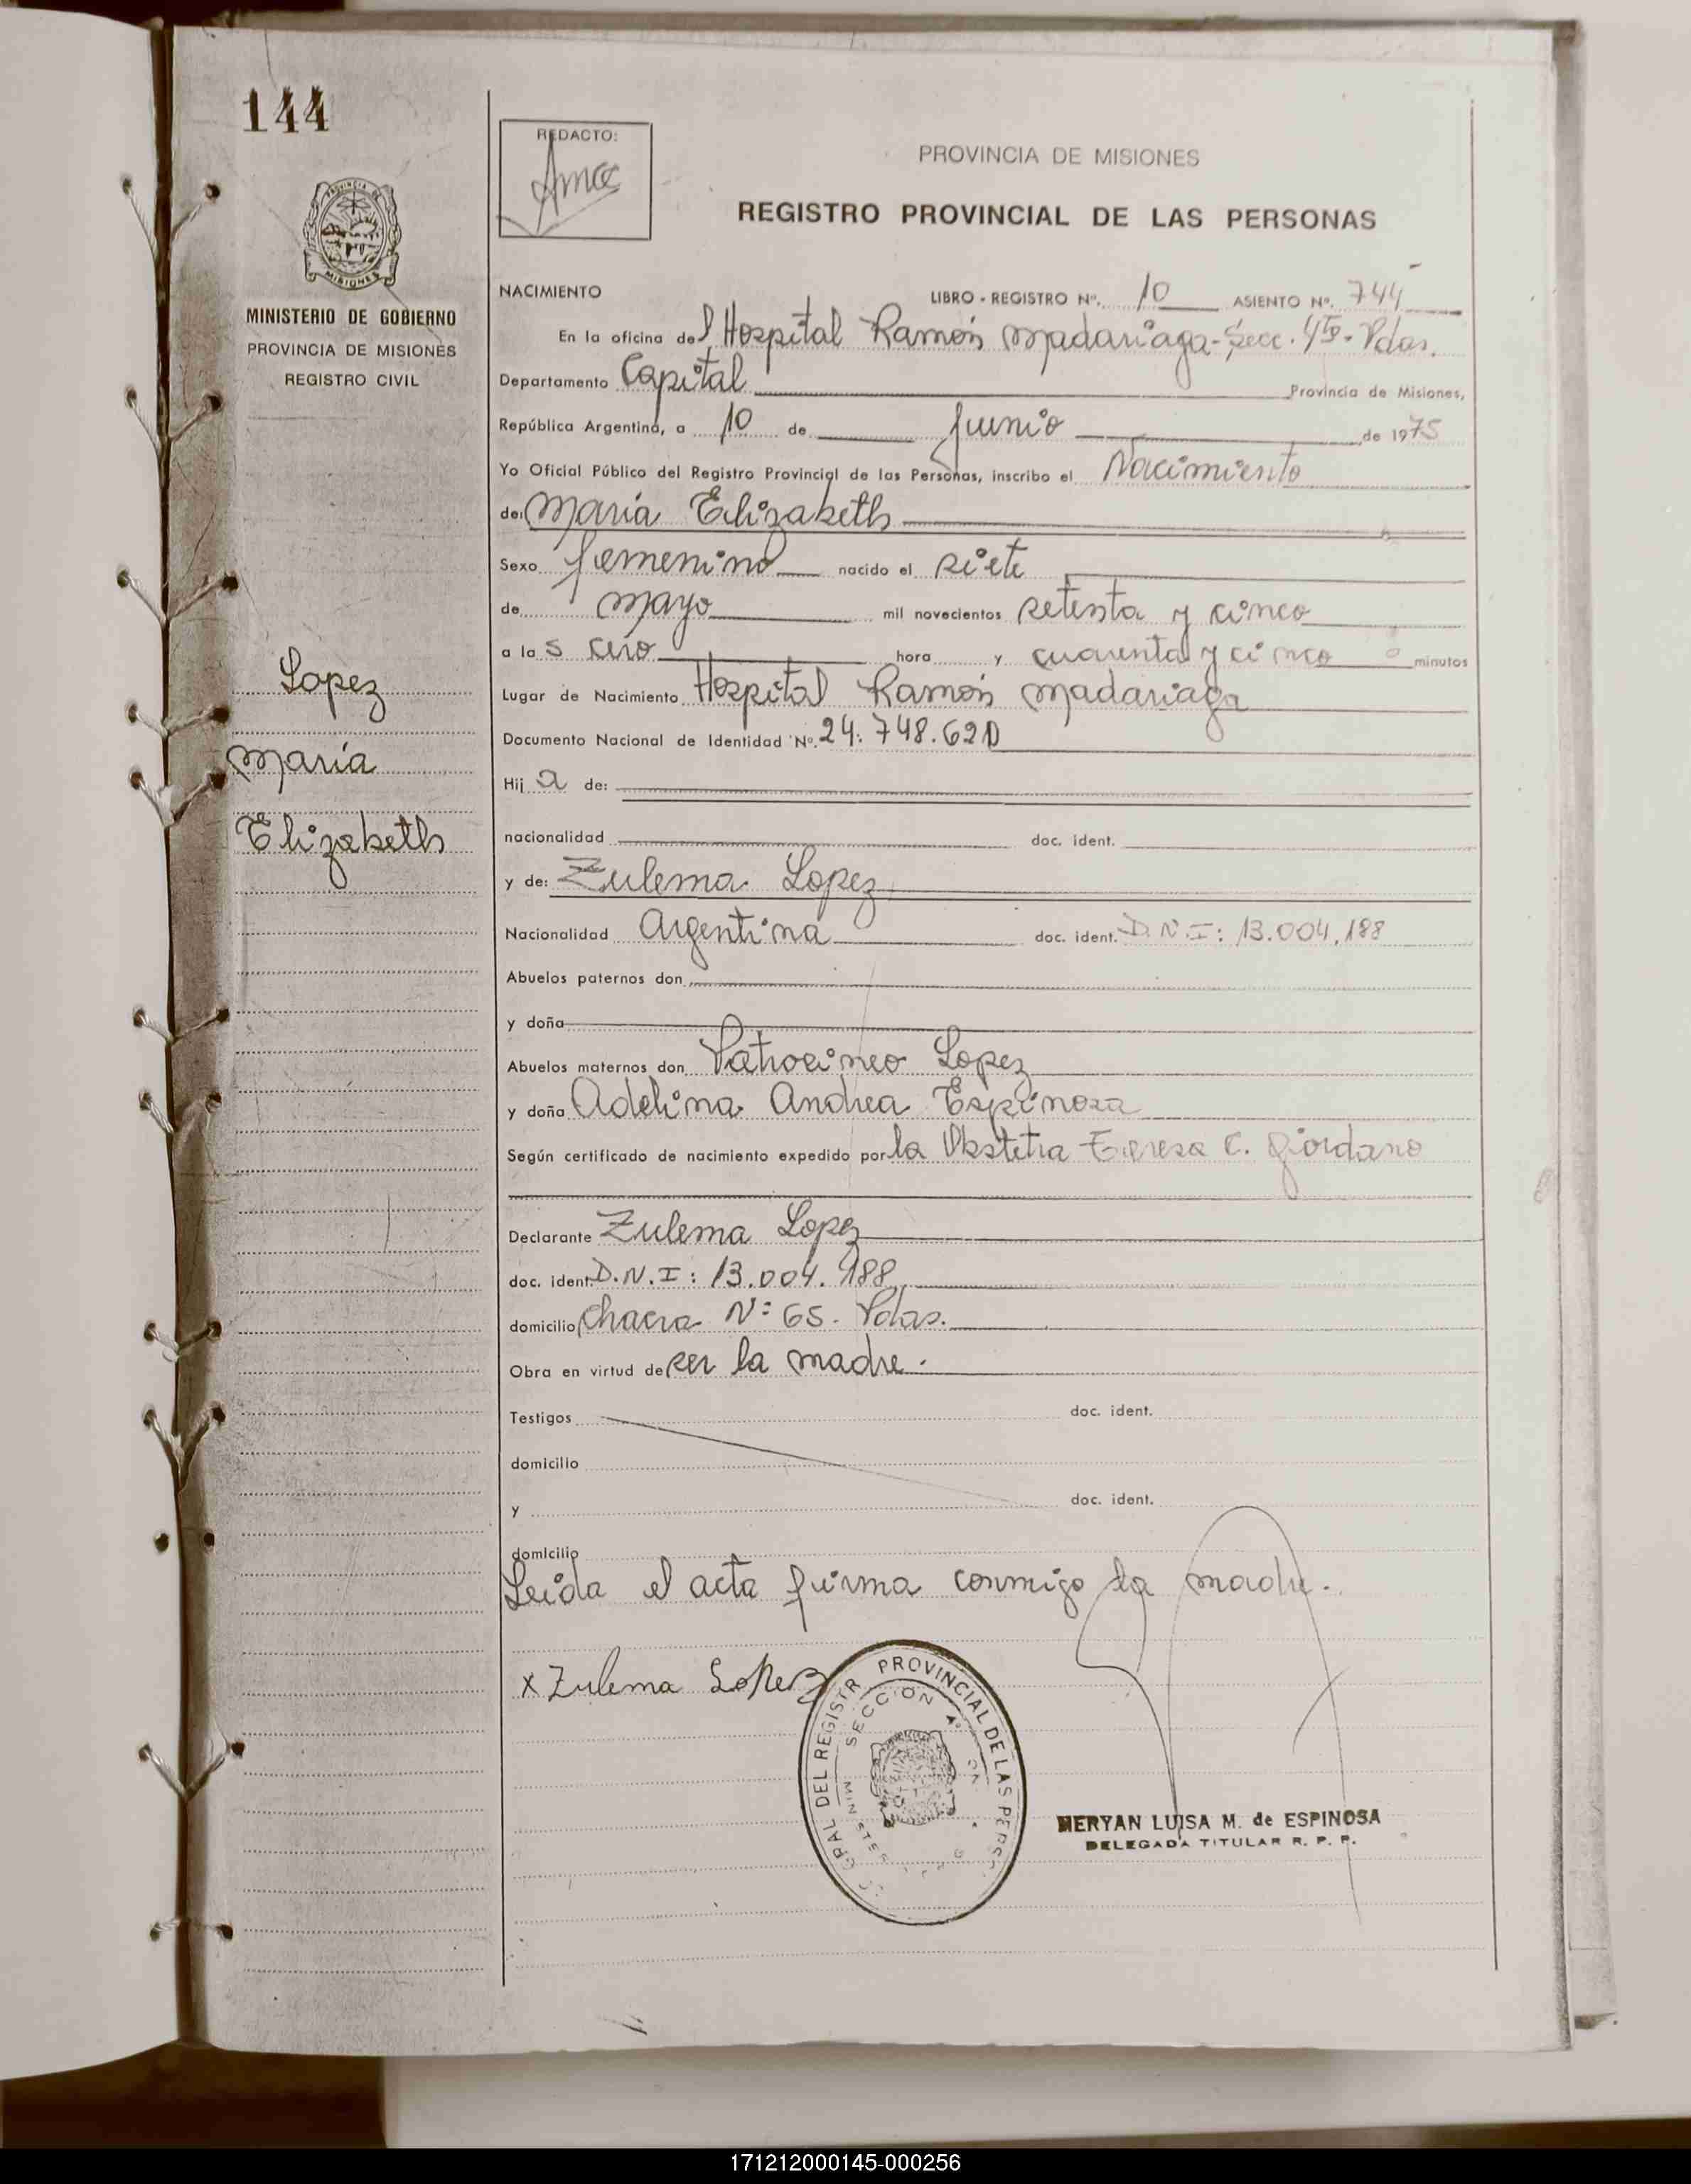 144
REDACTO:
PROVINCIA DE MISIONES
REGISTRO PROVINCIAL DE LAS PERSONAS
MINISTERIO DE GOBIERNO
PROVINCIA DE MISIONES
REGISTRO CIVIL
NACIMIENTO LIBRO - REGISTRO Nº. 10 ASIENTO Nº. 744
En la oficina del Hospital Ramón Madariaga - Secc. 4ta - Pdas.
Departamento Capital Provincia de Misiones,
República Argentina, a 10 de Junio de 1975
Yo Oficial Público del Registro Provincial de las Personas, inscribo el Nacimiento
de: Maria Elizabeth
Sexo femenino nacido el siete
de mayo mil novecientos setenta y cinco
a las cero hora y cuarenta y cinco minutos
Lugar de Nacimiento Hospital Ramón Madariaga
Documento Nacional de Identidad Nº. 24.748.620
Hija de:
nacionalidad doc. ident.
y de: Zulema Lopez
Nacionalidad Argentina doc. ident. D.N.I: 13.004.188
Abuelos paternos don
y doña
Abuelos maternos don Patrocineo Lopez
y doña Adelina Andrea Espinosa
Según certificado de nacimiento expedido por la Obstetra Teresa C. Giordano
Declarante Zulema Lopez
doc. ident. D.N.I: 13.004.188
domicilio Chacra Nº 65. Pdas.
Obra en virtud de ser la madre.
Testigos doc. ident.
domicilio
y doc. ident.
domicilio
Leida el acta firma conmigo la madre.
x Zulema Lopez
Lopez
Maria
Elizabeth
GRAL DEL REGISTR PROVINCIAL DE LAS PERS
SECCION 4º
MERYAN LUISA M. de ESPINOSA
DELEGADA TITULAR R. P. P.
171212000145-000256